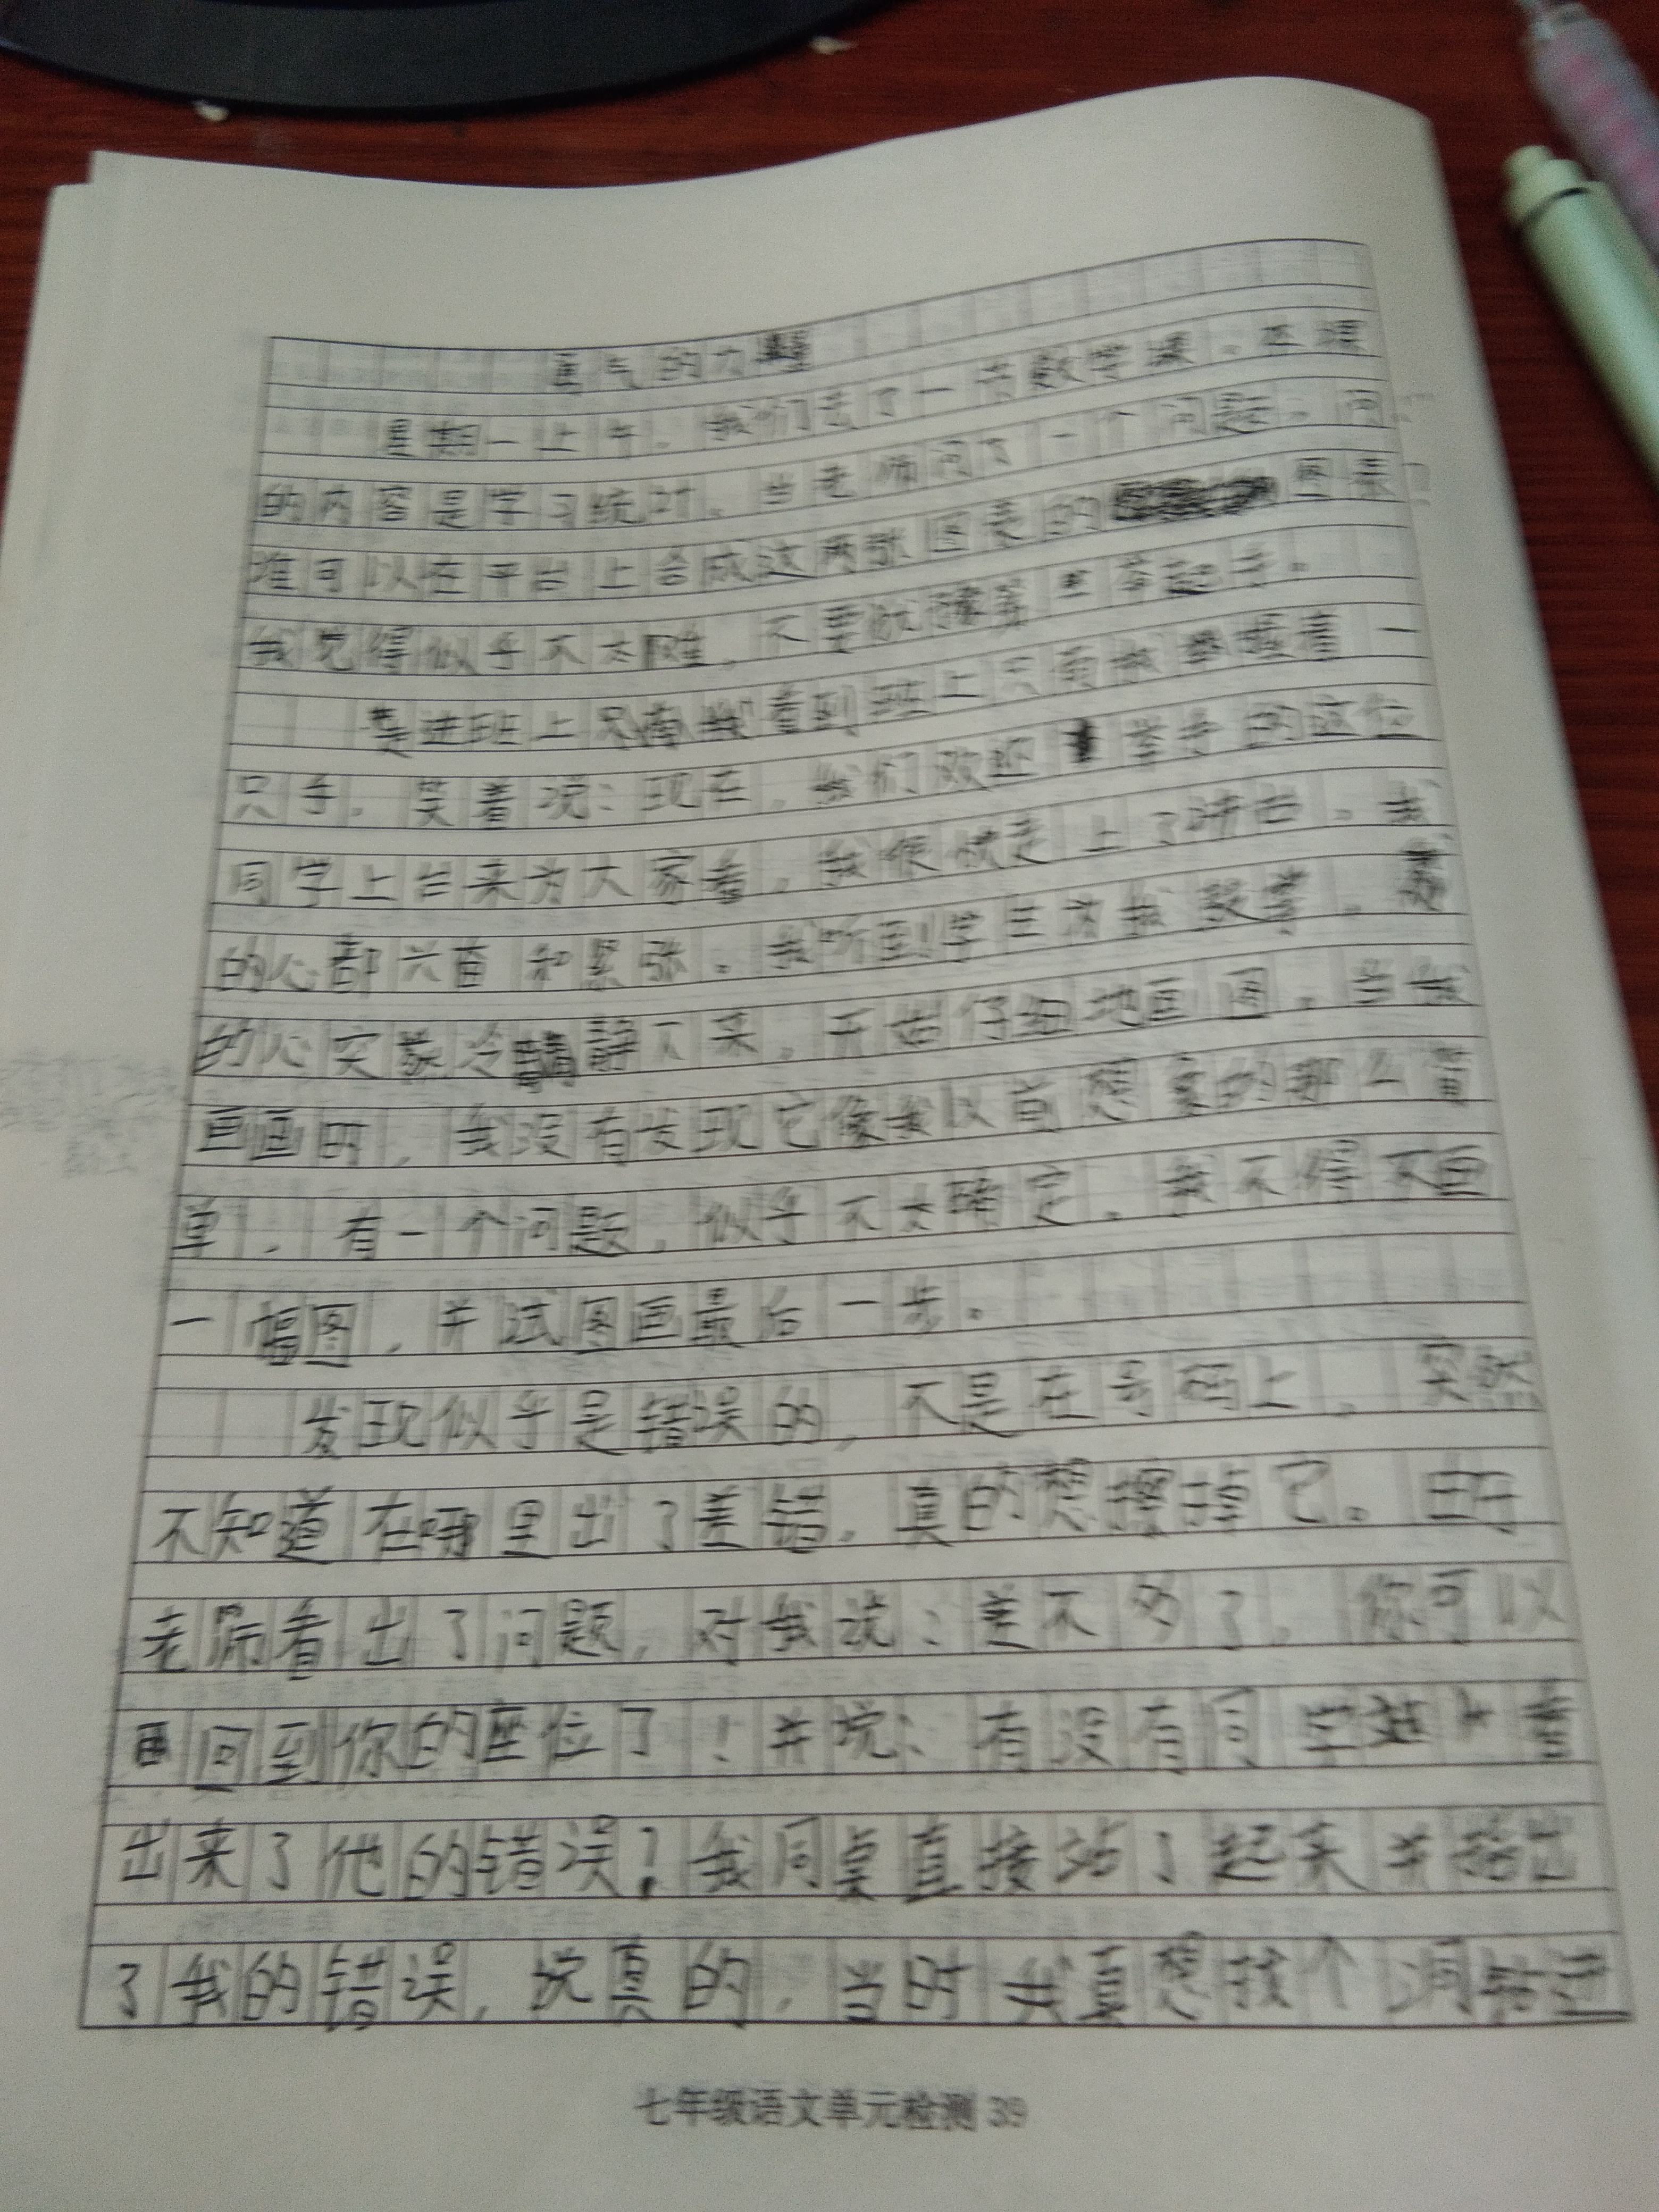 勇气的力量
星期一上午,我们去了一节数学课。本课
的内容是学习统计。当老师问了一个问题。问:
谁可以在平台上合成这两张图表的图表
我觉得似乎不太难,不要犹豫 举起手。
走进班上 我看到班上只有我 握着一
只手,笑着说:现在,我们欢迎 举手的这位
同学上台来为大家看,我很快走上了讲台。我
的心都兴奋和紧张。我听到学生为我鼓掌,我
的心突然冷静下来,开始仔细地画图。当我
画画时,我没有发现它像我以前想象的那么简
单,有一个问题,似乎不太确定。我不得不画
一幅图,并试图画最后一步。
发现似乎是错误的,不是在号码上。突然
不知道在哪里出了差错,真的想擦掉它。王
老师看出了问题,对我说:差不多了,你可以
回到你的座位了!并说:有没有同学 看
出来了他的错误?我同桌直接站了起来并指出
了我的错误,说真的,当时我真想找个洞钻进
七年级语文单元检测 39